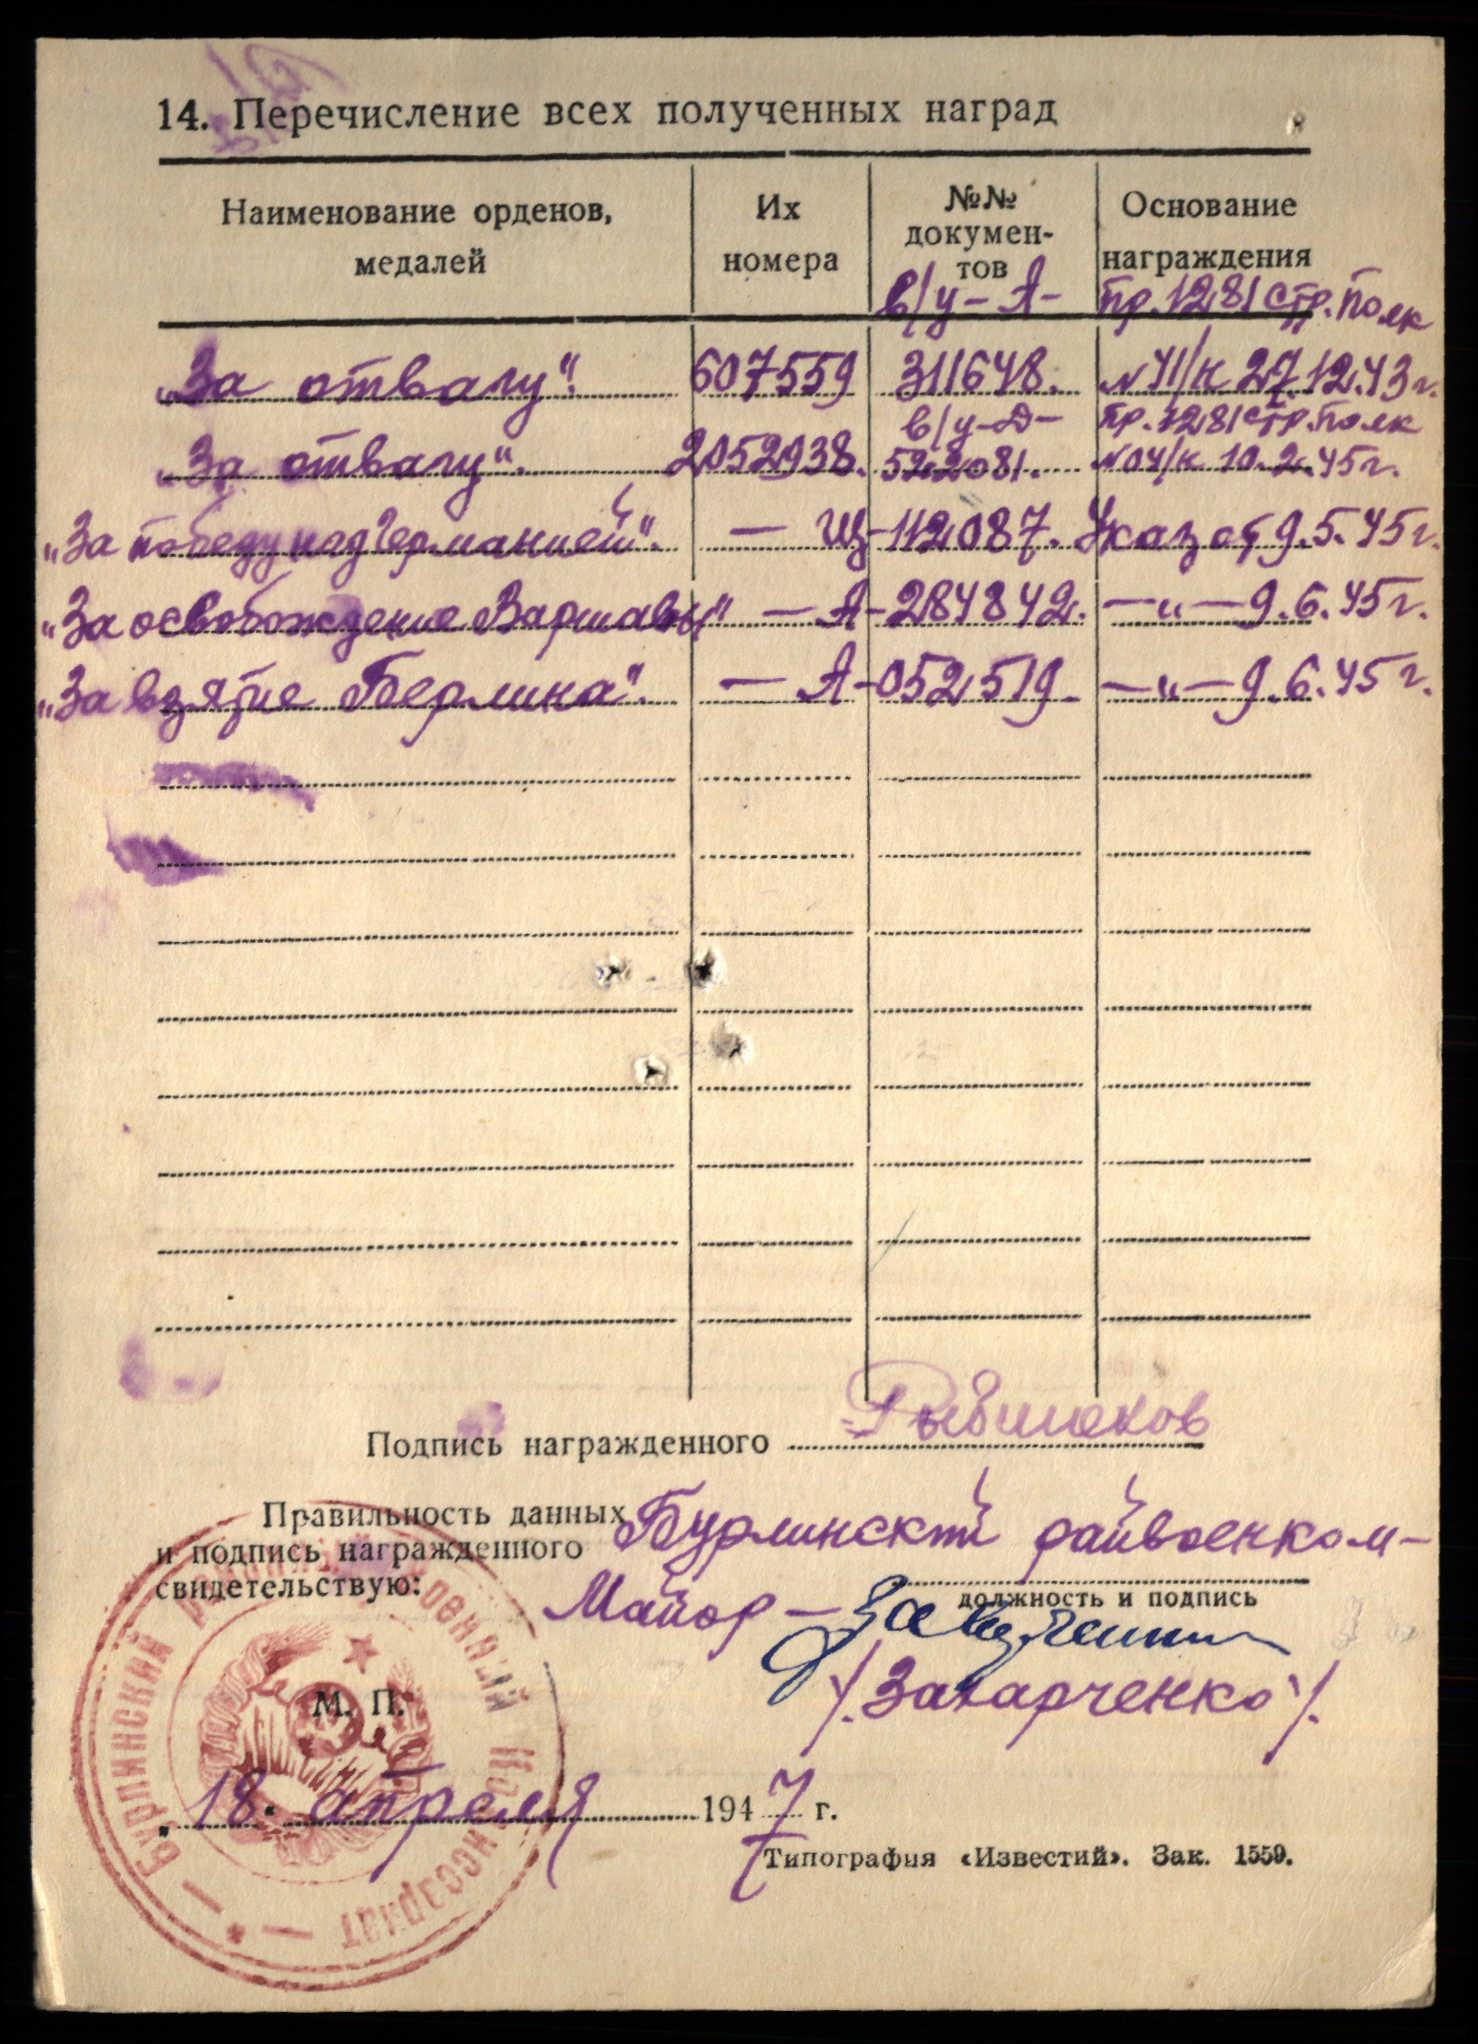 14. Перечисление всех полученных наград
Наименование орденов, медалей
Их номера
№№ докумен-тов
Основание награждения
в/у-А- Пр. 1281 стр. Полк
„За отвагу“. 607559 311648. №41/н 27.12.43г.
в/у-Д- Пр. 1281 стр. Полк
„За отвагу“. 2052938. 522081. №04/н 10.2.45г.
„За победу над Германией“. — Щ-112087. Указ от 9.5.45г.
„За освобождение Варшавы“ — А-284842. —„—9.6.45г.
„За взятие Берлина“. — А-052519 —„—9.6.45г.
Подпись награжденного
Правильность данных
и подпись награжденного
свидетельствую:
Бурлинский райвоенком-
должность и подпись
Майор —
/.Захарченко/.
М. П.
БУРЛИНСКИЙ РАЙОННЫЙ ВОЕННЫЙ КОМИССАРИАТ
„18“ апреля 1947 г.
Типография «Известий». Зак. 1559.